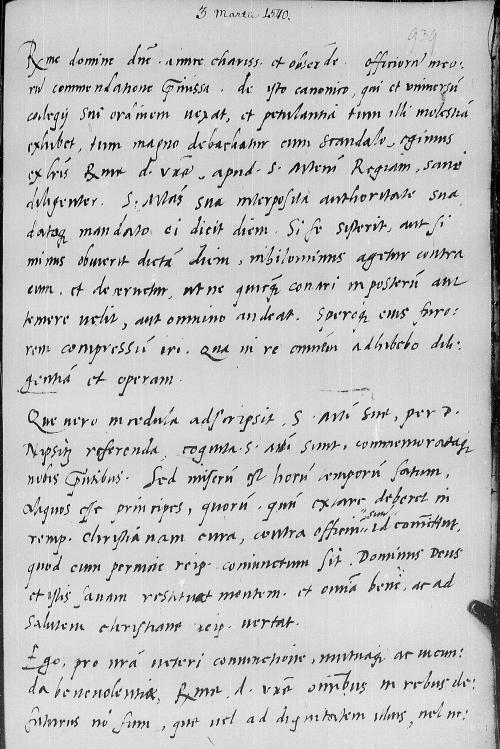 3 Martii 1540.
939
Rme domine dne amice chariss. et obser de. officiorū meo:
rū commendatione pmissa. de isto canonico, qui et uniuersū
collegiū sui ordinem uexat, et petulantia tum illi molestiā
exhibet, tum magno debachatur cum scandalo, egimus
ex lris Rme d. vrae, apud S. Mtem Regiam, sane
diligenter. S. Mtas sua interposita authoritate sua
datoq mandato ei dicit diem. Si se sisterit, aut si
minus obiuerit dictā diem, nihilominus agetur contra
eum, et decernetur, ut ne quicq conari in posterū aut
temere uelit, aut omnino audeat. Speroq eius furo:
rem compressū iri. Qua in re omnem adhibebo dili:
gentiā et operam.
Que uero in cedula adscripsit, S. Mti sue, per D.
Nipsitz referenda, cognita S. Mti sunt, commemorataq
nobis pntibus. Sed miserū est horū temporū fatum,
aliquos esse principes, quorū quū extare deberet in
remp. christianam cura, contra officiū suū id comittūt,
quod cum pernicie reip. coniunctum sit. Dominus Deus
et istis sanam restituat mentem et omīa bene, ac ad
salutem christiane reip. uertat.
Ego, pro nrā ueteri coniunctione, mutuaq ac iucun:
da beneuolentia, Rme d. vrae omībus in rebus de:
futurus nō sum, que uel ad dignitatem illius, uel ne: